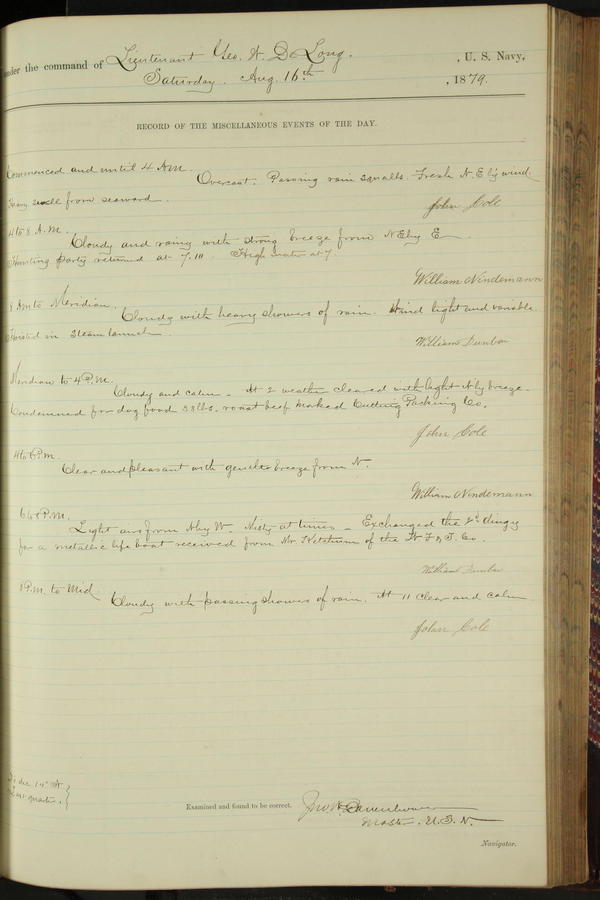 under the command of Lieutenant Geo. W. De Long. , U. S. Navy,
Saturday. Aug. 16th , 1879.
RECORD OF THE MISCELLANEOUS EVENTS OF THE DAY.
Commenced and until 4 A.M.
Overcast. Passing rain squalls. Fresh N.E'ly wind.
Heavy swell from seaward.
John Cole
4 to 8 A.M.
Cloudy and rainy with strong breeze from N Ely E
Hunting party returned at 7.10. High water at 7.
William Nindemann
8 Am to Meridian.
Cloudy with heavy showers of rain. Wind light and variable.
Hoisted in steam launch.
William Dunbar
Meridian to 4 P.M.
Cloudy and calm. At 2 weather cleared with light N'ly breeze.
Condemned for dog food 38 lbs. roast beef marked Cutting Packing Co.
John Cole
4 to 6 P.m.
Clear and pleasant with gentle breeze from N.
William Nindemann
6 to 8 P.M.
Light airs from N'ly W. Misty at times - Exchanged the 2d dingy
for a metallic life boat received from Mr. Ketchum of the W F & T. Co.
William Dunbar
8 P.M. to Mid.
Cloudy with passing showers of rain. At 11 clear and calm
John Cole
Examined and found to be correct. Jno. W. Danenhower
Master. U.S.N.
Navigator.